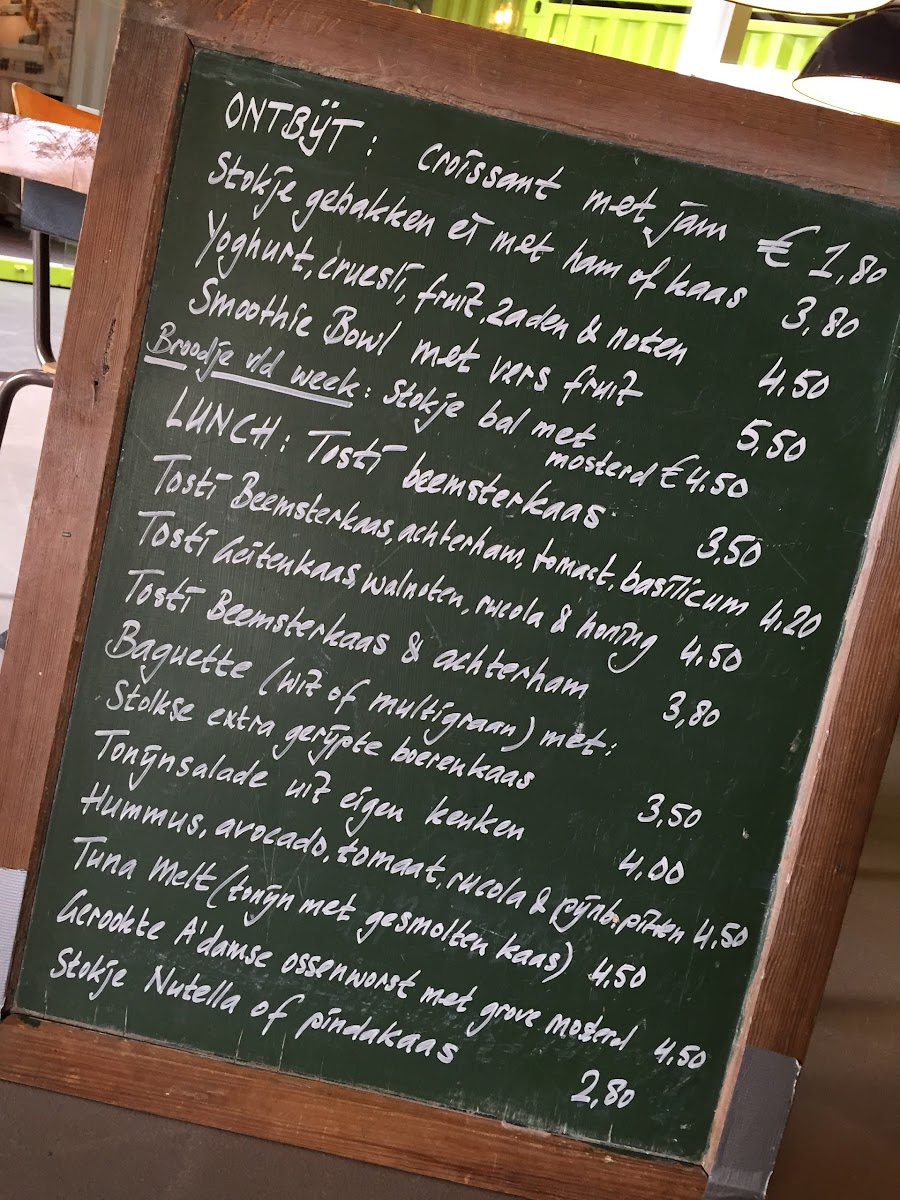 ONTBIJT: croissant met jam € 1,80
Stokje gebakken ei met ham of kaas 3,80
Yoghurt, cruesli, fruit, zaden & noten 4.50
Smoothie Bowl met vers fruit 5,50
Broodje v/d week: Stokje bal met
mosterd € 4.50
LUNCH: Tosti beemsterkaas 3,50
Tosti Beemsterkaas, achterham, tomaat, basilicum 4.20
Tosti Geitenkaas, walnoten, rucola & honing 4.50
Tosti Beemsterkaas & achterham 3,80
Baguette (wit of multigraan) met:
Stolkse extra gerijpte boerenkaas 3,50
Tonijnsalade uit eigen keuken 4,00
Hummus, avocado, tomaat, rucola & pijnb.pitten 4.50
Tuna Melt (tonijn met gesmolten kaas) 4.50
Gerookte A'damse ossenworst met grove mosterd 4.50
Stokje Nutella of pindakaas 2,80